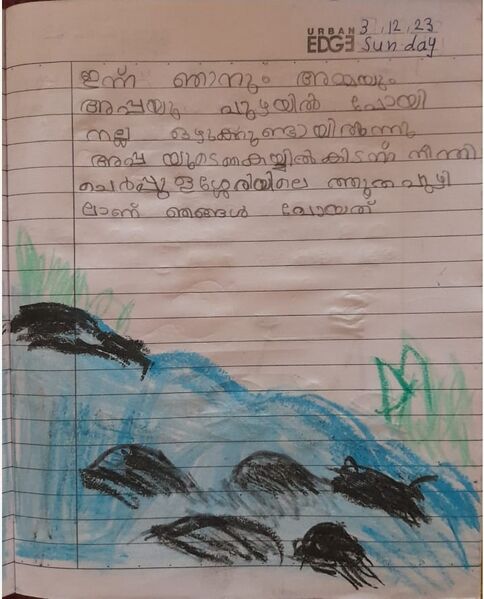 URBAN EDGE 3,12,23
Sunday
ഇന്ന് ഞാനും അമ്മയും
അപ്പയു പുഴയിൽ പോയി
നല്ല ഒഴുക്കുണ്ടായിരുന്നു
അപ്പ യുടെ കൈയ്യിൽ കിടന്ന് നീന്തി
ചെർപ്പുളശ്ശേരിയിലെ തൂത പുഴ
ലാണ് ഞങ്ങൾ പോയത്